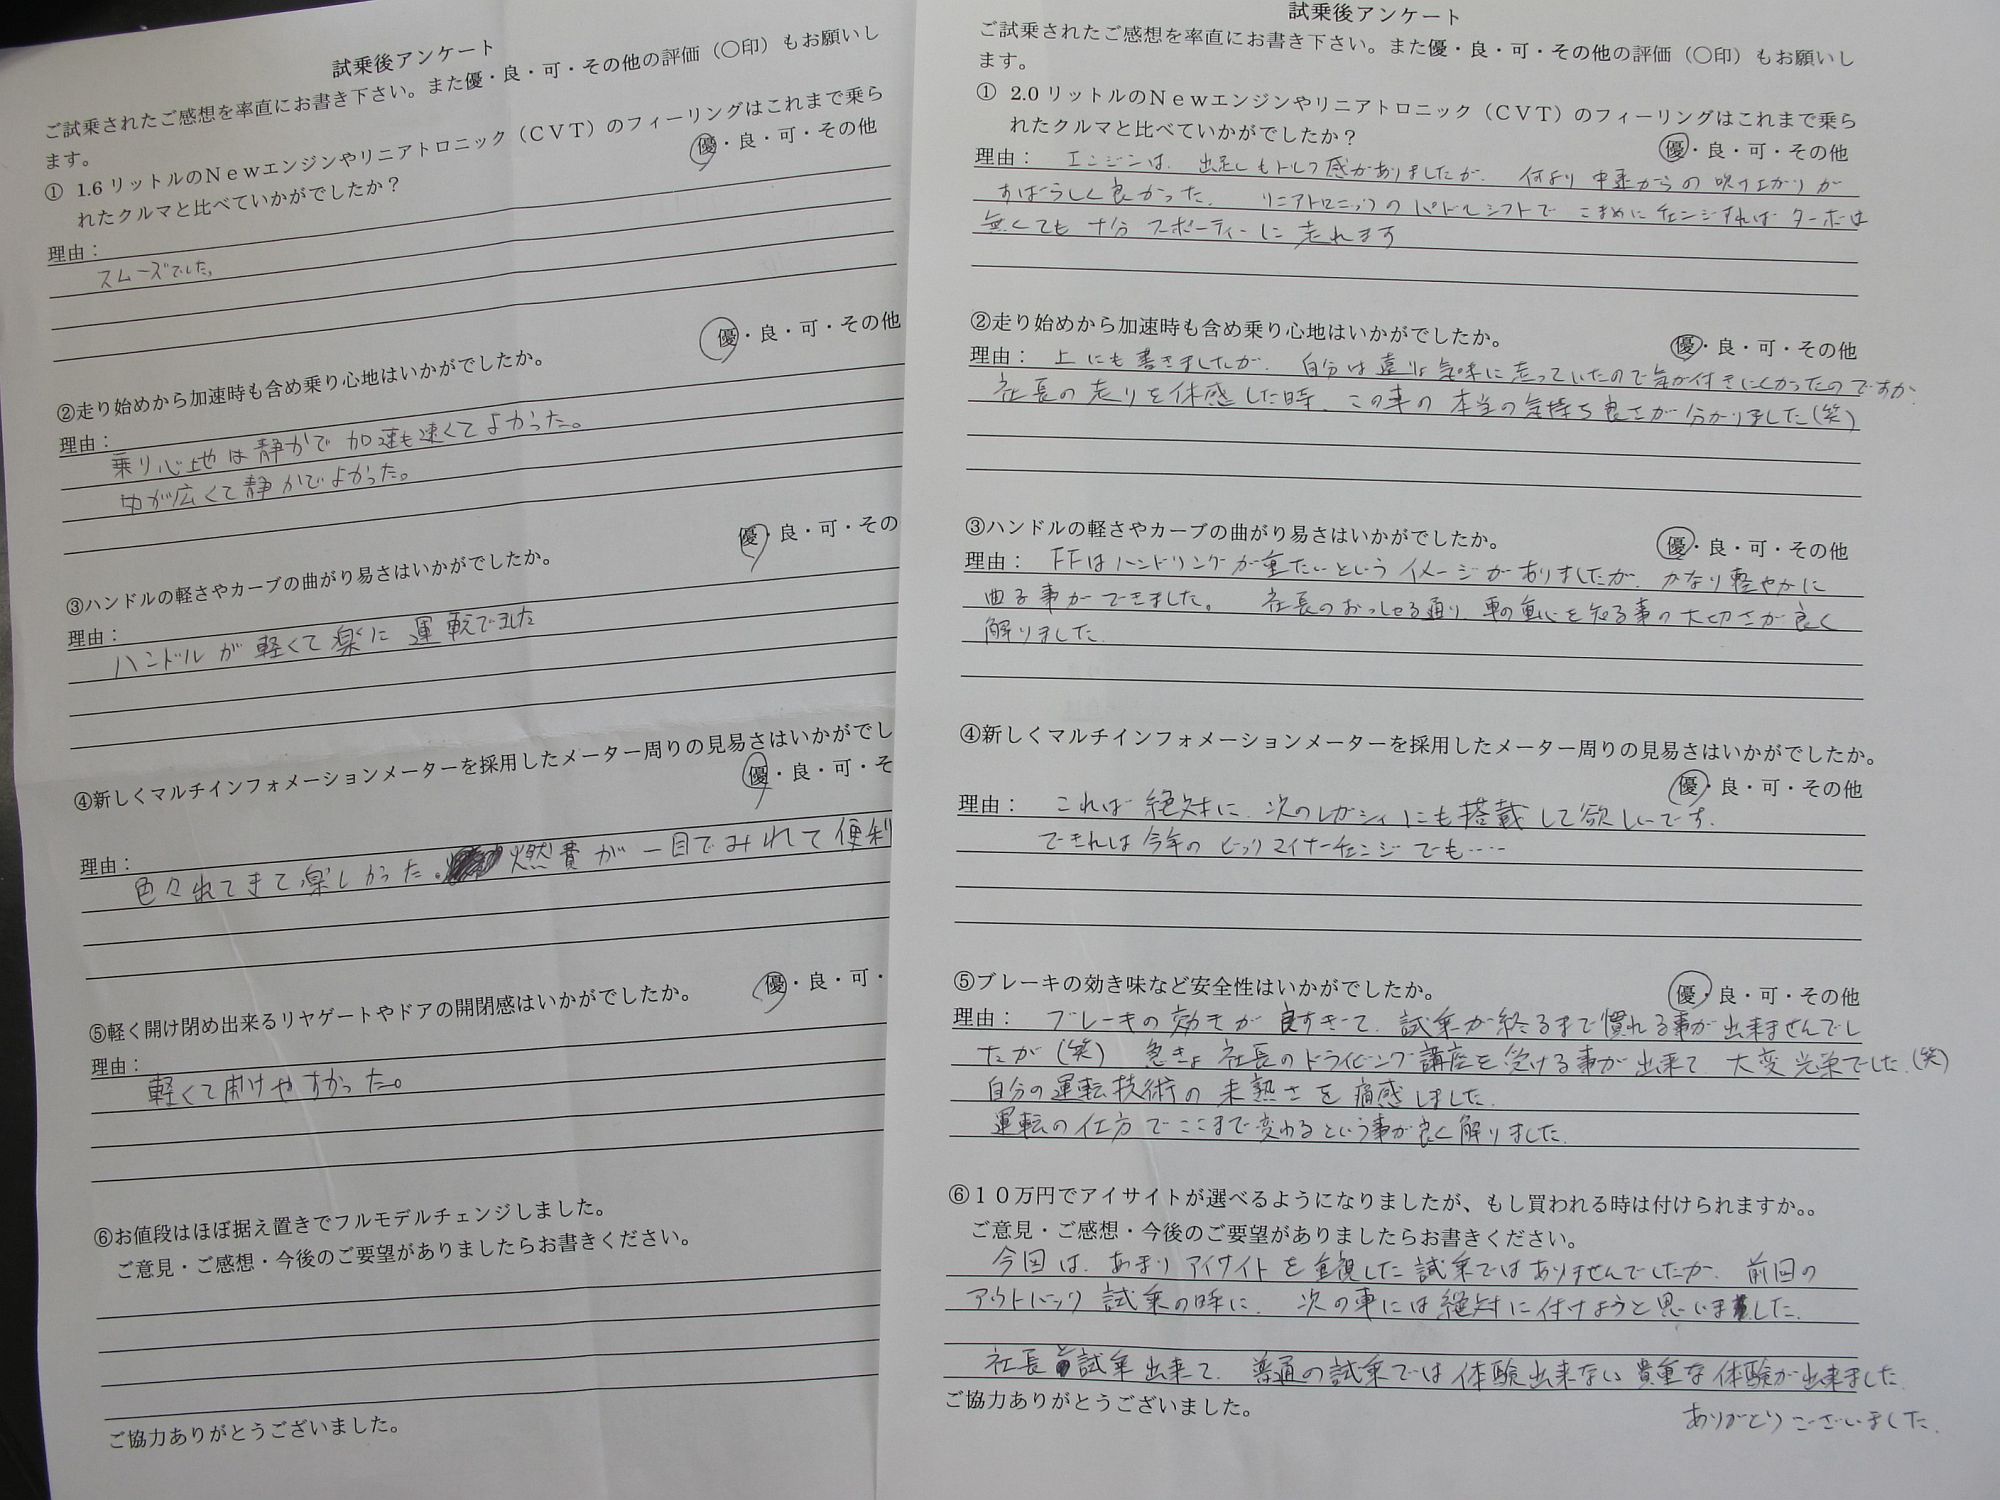 試乗後アンケート
ご試乗されたご感想を率直にお書き下さい。また優・良・可・その他の評価（〇印）もお願いし
ます。
① 1.6 リットルのＮｅｗエンジンやリニアトロニック（ＣＶＴ）のフィーリングはこれまで乗ら
れたクルマと比べていかがでしたか？
優・良・可・その他
理由：
スムーズでした。
②走り始めから加速時も含め乗り心地はいかがでしたか。
優・良・可・その他
理由：
乗り心地は静かで加速も速くてよかった。
中が広くて静かでよかった。
③ハンドルの軽さやカーブの曲がり易さはいかがでしたか。
優・良・可・その
理由：
ハンドルが軽くて楽に運転できました
④新しくマルチインフォメーションメーターを採用したメーター周りの見易さはいかがでし
優・良・可・そ
理由：
色々れてきて楽しかった。燃費が一目でみれて便利
⑤軽く開け閉め出来るリヤゲートやドアの開閉感はいかがでしたか。
優・良・可・
理由：
軽くて開けやすかった。
⑥お値段はほぼ据え置きでフルモデルチェンジしました。
ご意見・ご感想・今後のご要望がありましたらお書きください。
ご協力ありがとうございました。
試乗後アンケート
ご試乗されたご感想を率直にお書き下さい。また優・良・可・その他の評価（〇印）もお願いし
ます。
① 2.0 リットルのＮｅｗエンジンやリニアトロニック（ＣＶＴ）のフィーリングはこれまで乗ら
れたクルマと比べていかがでしたか？
優・良・可・その他
理由： エンジンは、出足しもトルク感がありましたが、何より中速からの吹け上がりが
すばらしく良かった。リニアトロニックのパドルシフトでこまめにチェンジすればターボは
無くても十分スポーティーに走れます
②走り始めから加速時も含め乗り心地はいかがでしたか。
優・良・可・その他
理由： 上にも書きましたが、自分は遠慮気味に走っていたので気が付きにくかったのですが、
社長の走りを体感した時、この車の本当の気持ち良さが分かりました(笑)
③ハンドルの軽さやカーブの曲がり易さはいかがでしたか。
優・良・可・その他
理由： FFはハンドリングが重たいというイメージがありましたが、かなり軽やかに
曲る事ができました。社長のおっしゃる通り、車の重心を知る事の大切さが良く
解りました。
④新しくマルチインフォメーションメーターを採用したメーター周りの見易さはいかがでしたか。
優・良・可・その他
理由： これは絶対に、次のレガシィにも搭載して欲しいです。
できれば今年のビックマイナーチェンジでも‥‥
⑤ブレーキの効き味など安全性はいかがでしたか。
優・良・可・その他
理由： ブレーキの効きが良すぎて、試乗が終るまで慣れる事が出来ませんでし
たが(笑) 急きょ社長のドライビング講座を受ける事が出来て、大変光栄でした。(笑)
自分の運転技術の未熟さを痛感しました。
運転の仕方でここまで変わるという事が良く解りました。
⑥１０万円でアイサイトが選べるようになりましたが、もし買われる時は付けられますか。。
ご意見・ご感想・今後のご要望がありましたらお書きください。
今回は、あまりアイサイトを重視した試乗ではありませんでしたが、前回の
アウトバック試乗の時に、次の車には絶対に付けようと思いました。
社長と試乗出来て、普通の試乗では体験出来ない貴重な体験が出来ました。
ご協力ありがとうございました。
ありがとうございました。